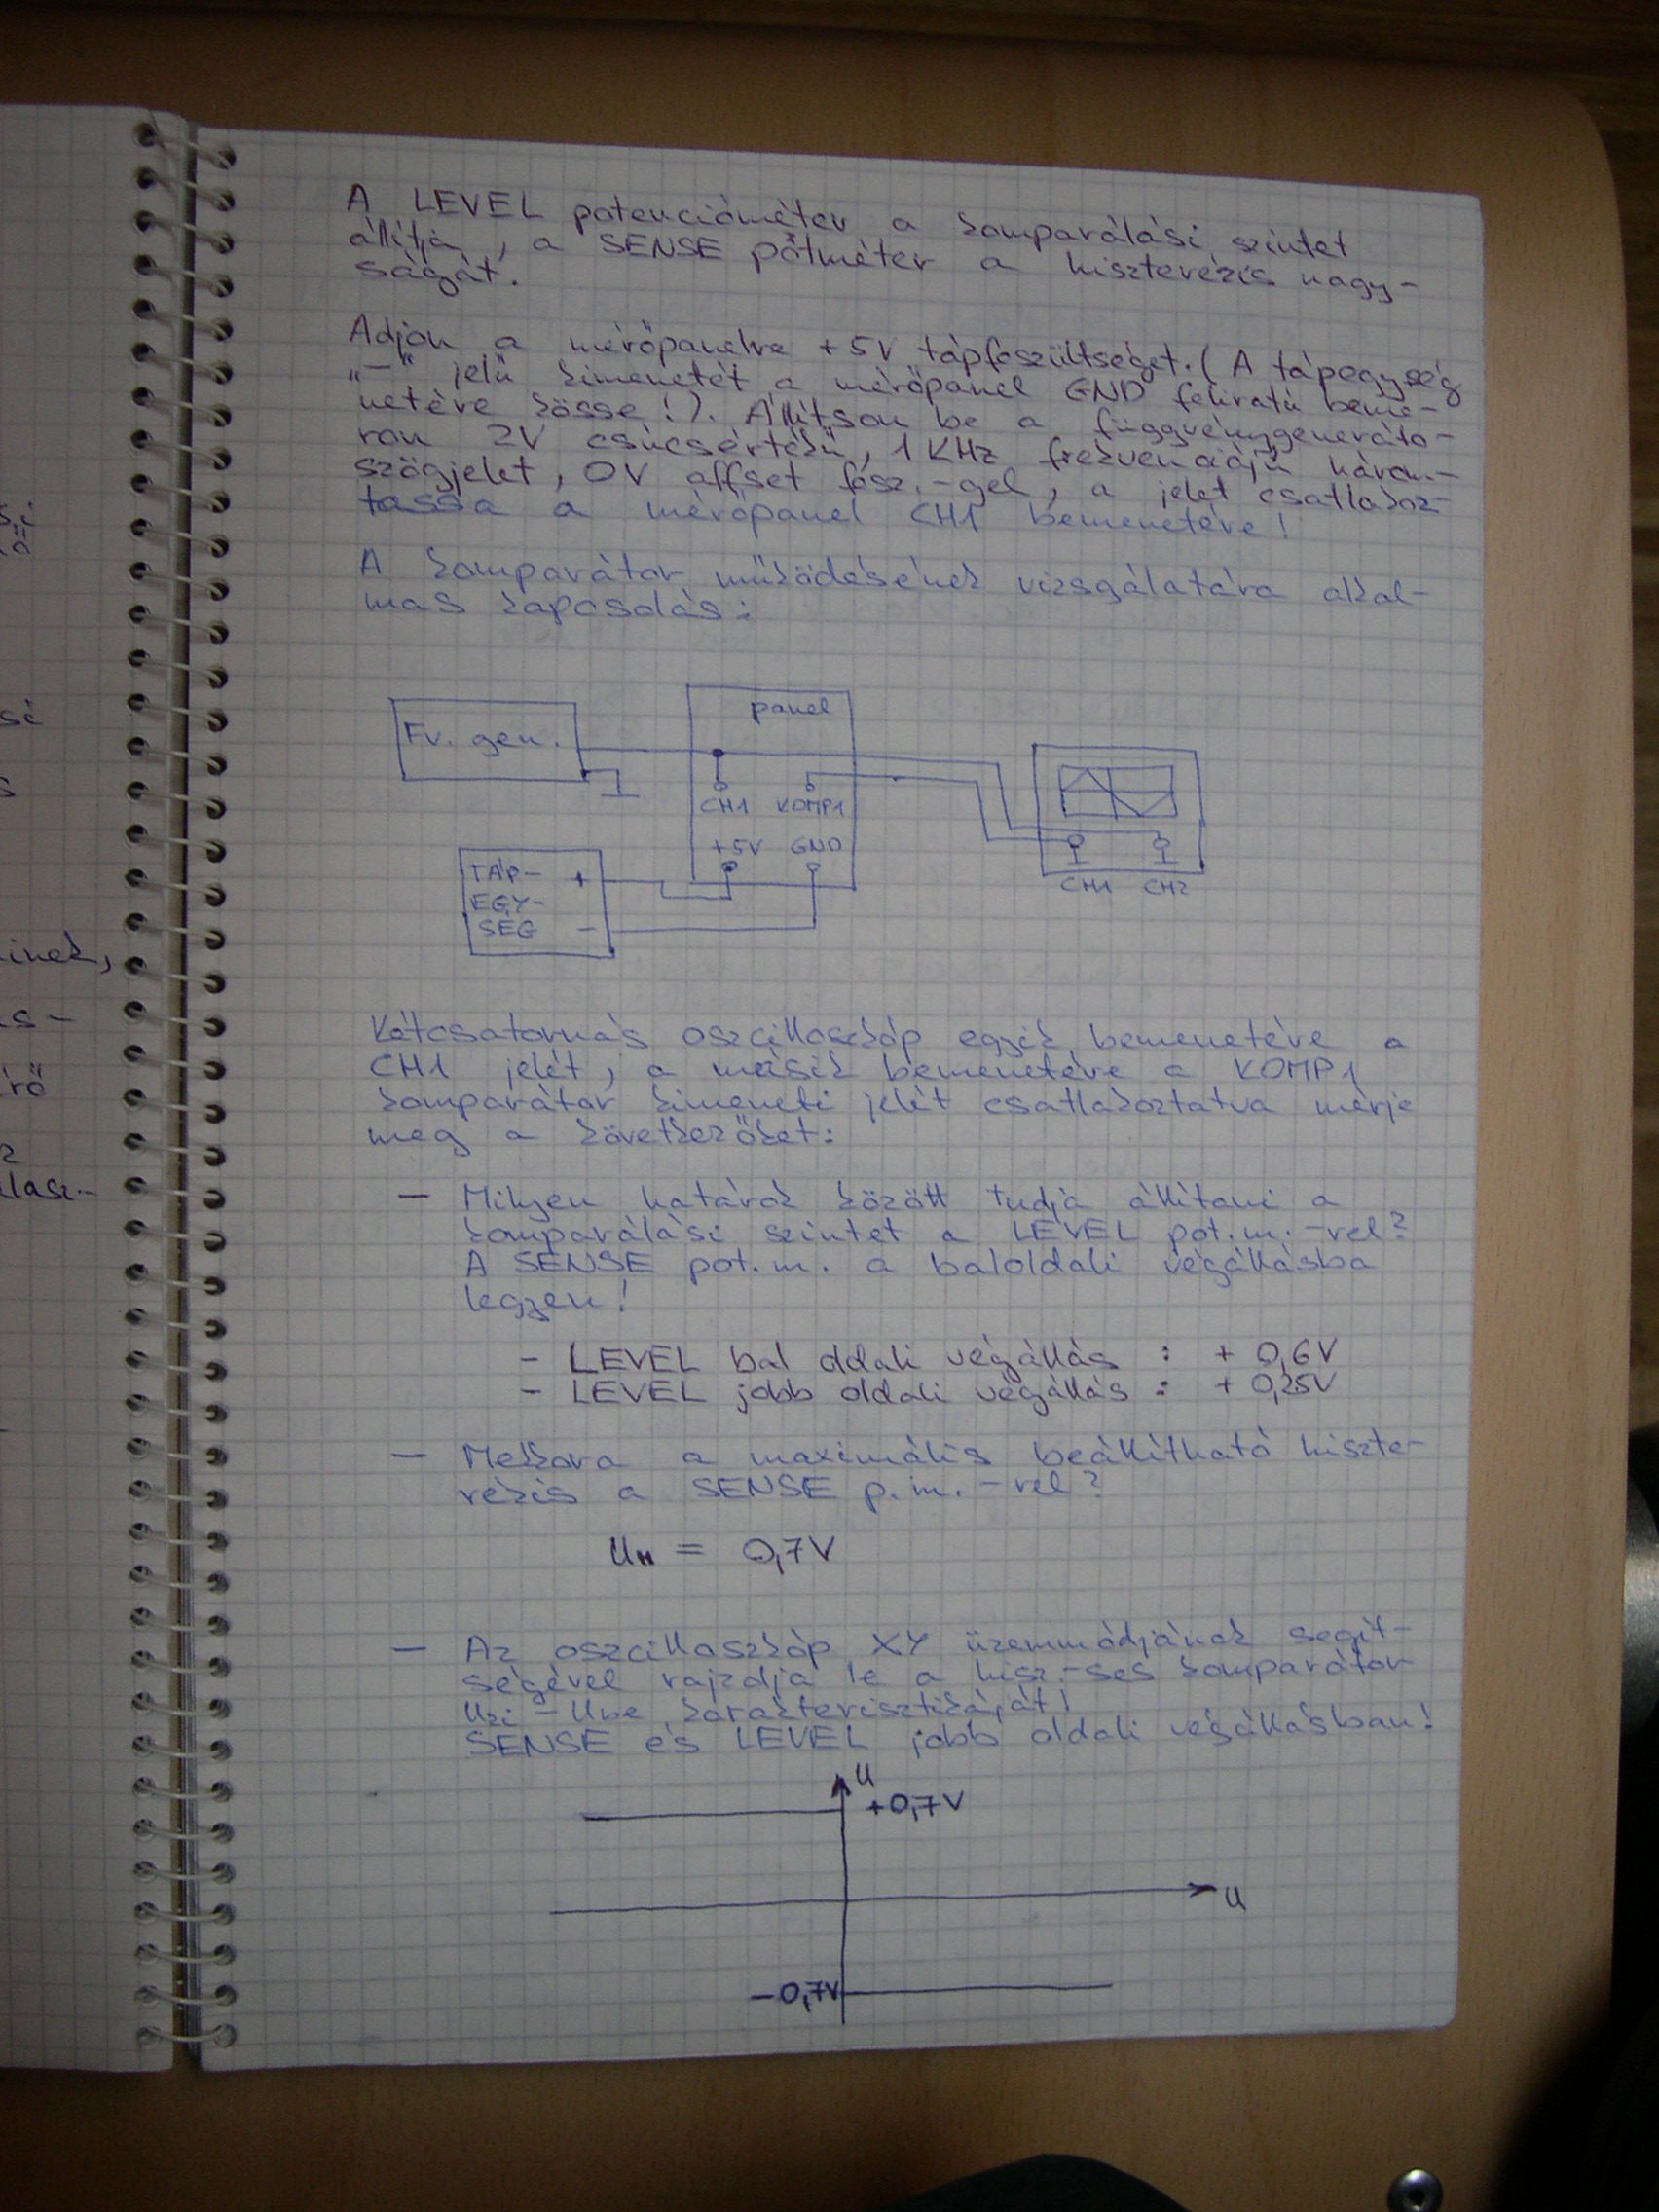 A LEVEL potenciométer a komparálási szintet
állítja, a SENSE potméter a hiszterézis nagy-
ságát.
Adjon a mérőpanelre +5V tápfeszültséget. (A tápegység
"-" jelű kimenetét a mérőpanel GND feliratú beme-
netére kösse!). Állítson be a függvénygeneráto-
ron 2V csúcsértékű, 1 KHz frekvenciájú három-
szögjelet, 0V offset fesz.-gel, a jelet csatlakoz-
tassa a mérőpanel CH1 bemenetére!
A komparátor működésének vizsgálatára alkal-
mas kapcsolás:
panel
Fv. gen.
CH1 KOMP1
+5V GND
TÁP- +
EGY-
SÉG -
CH1 CH2
Kétcsatornás oszcilloszkóp egyik bemenetére a
CH1 jelét, a másik bemenetére a KOMP1
komparátor kimeneti jelét csatlakoztatva mérje
meg a következőket:
- Milyen határok között tudja állítani a
komparálási szintet a LEVEL pot.m.-rel?
A SENSE pot.m. a baloldali végállásba
legyen!
- LEVEL bal oldali végállás : + 0,6V
- LEVEL jobb oldali végállás : + 0,25V
- Mekkora a maximális beállítható hiszte-
rézis a SENSE p.m.-rel?
UH = 0,7V
- Az oszcilloszkóp XY üzemmódjának segít-
ségével rajzolja le a hisz.-ses komparátor
Uki - Ube karakterisztikáját!
SENSE és LEVEL jobb oldali végállásban!
U
+0,7V
U
-0,7V